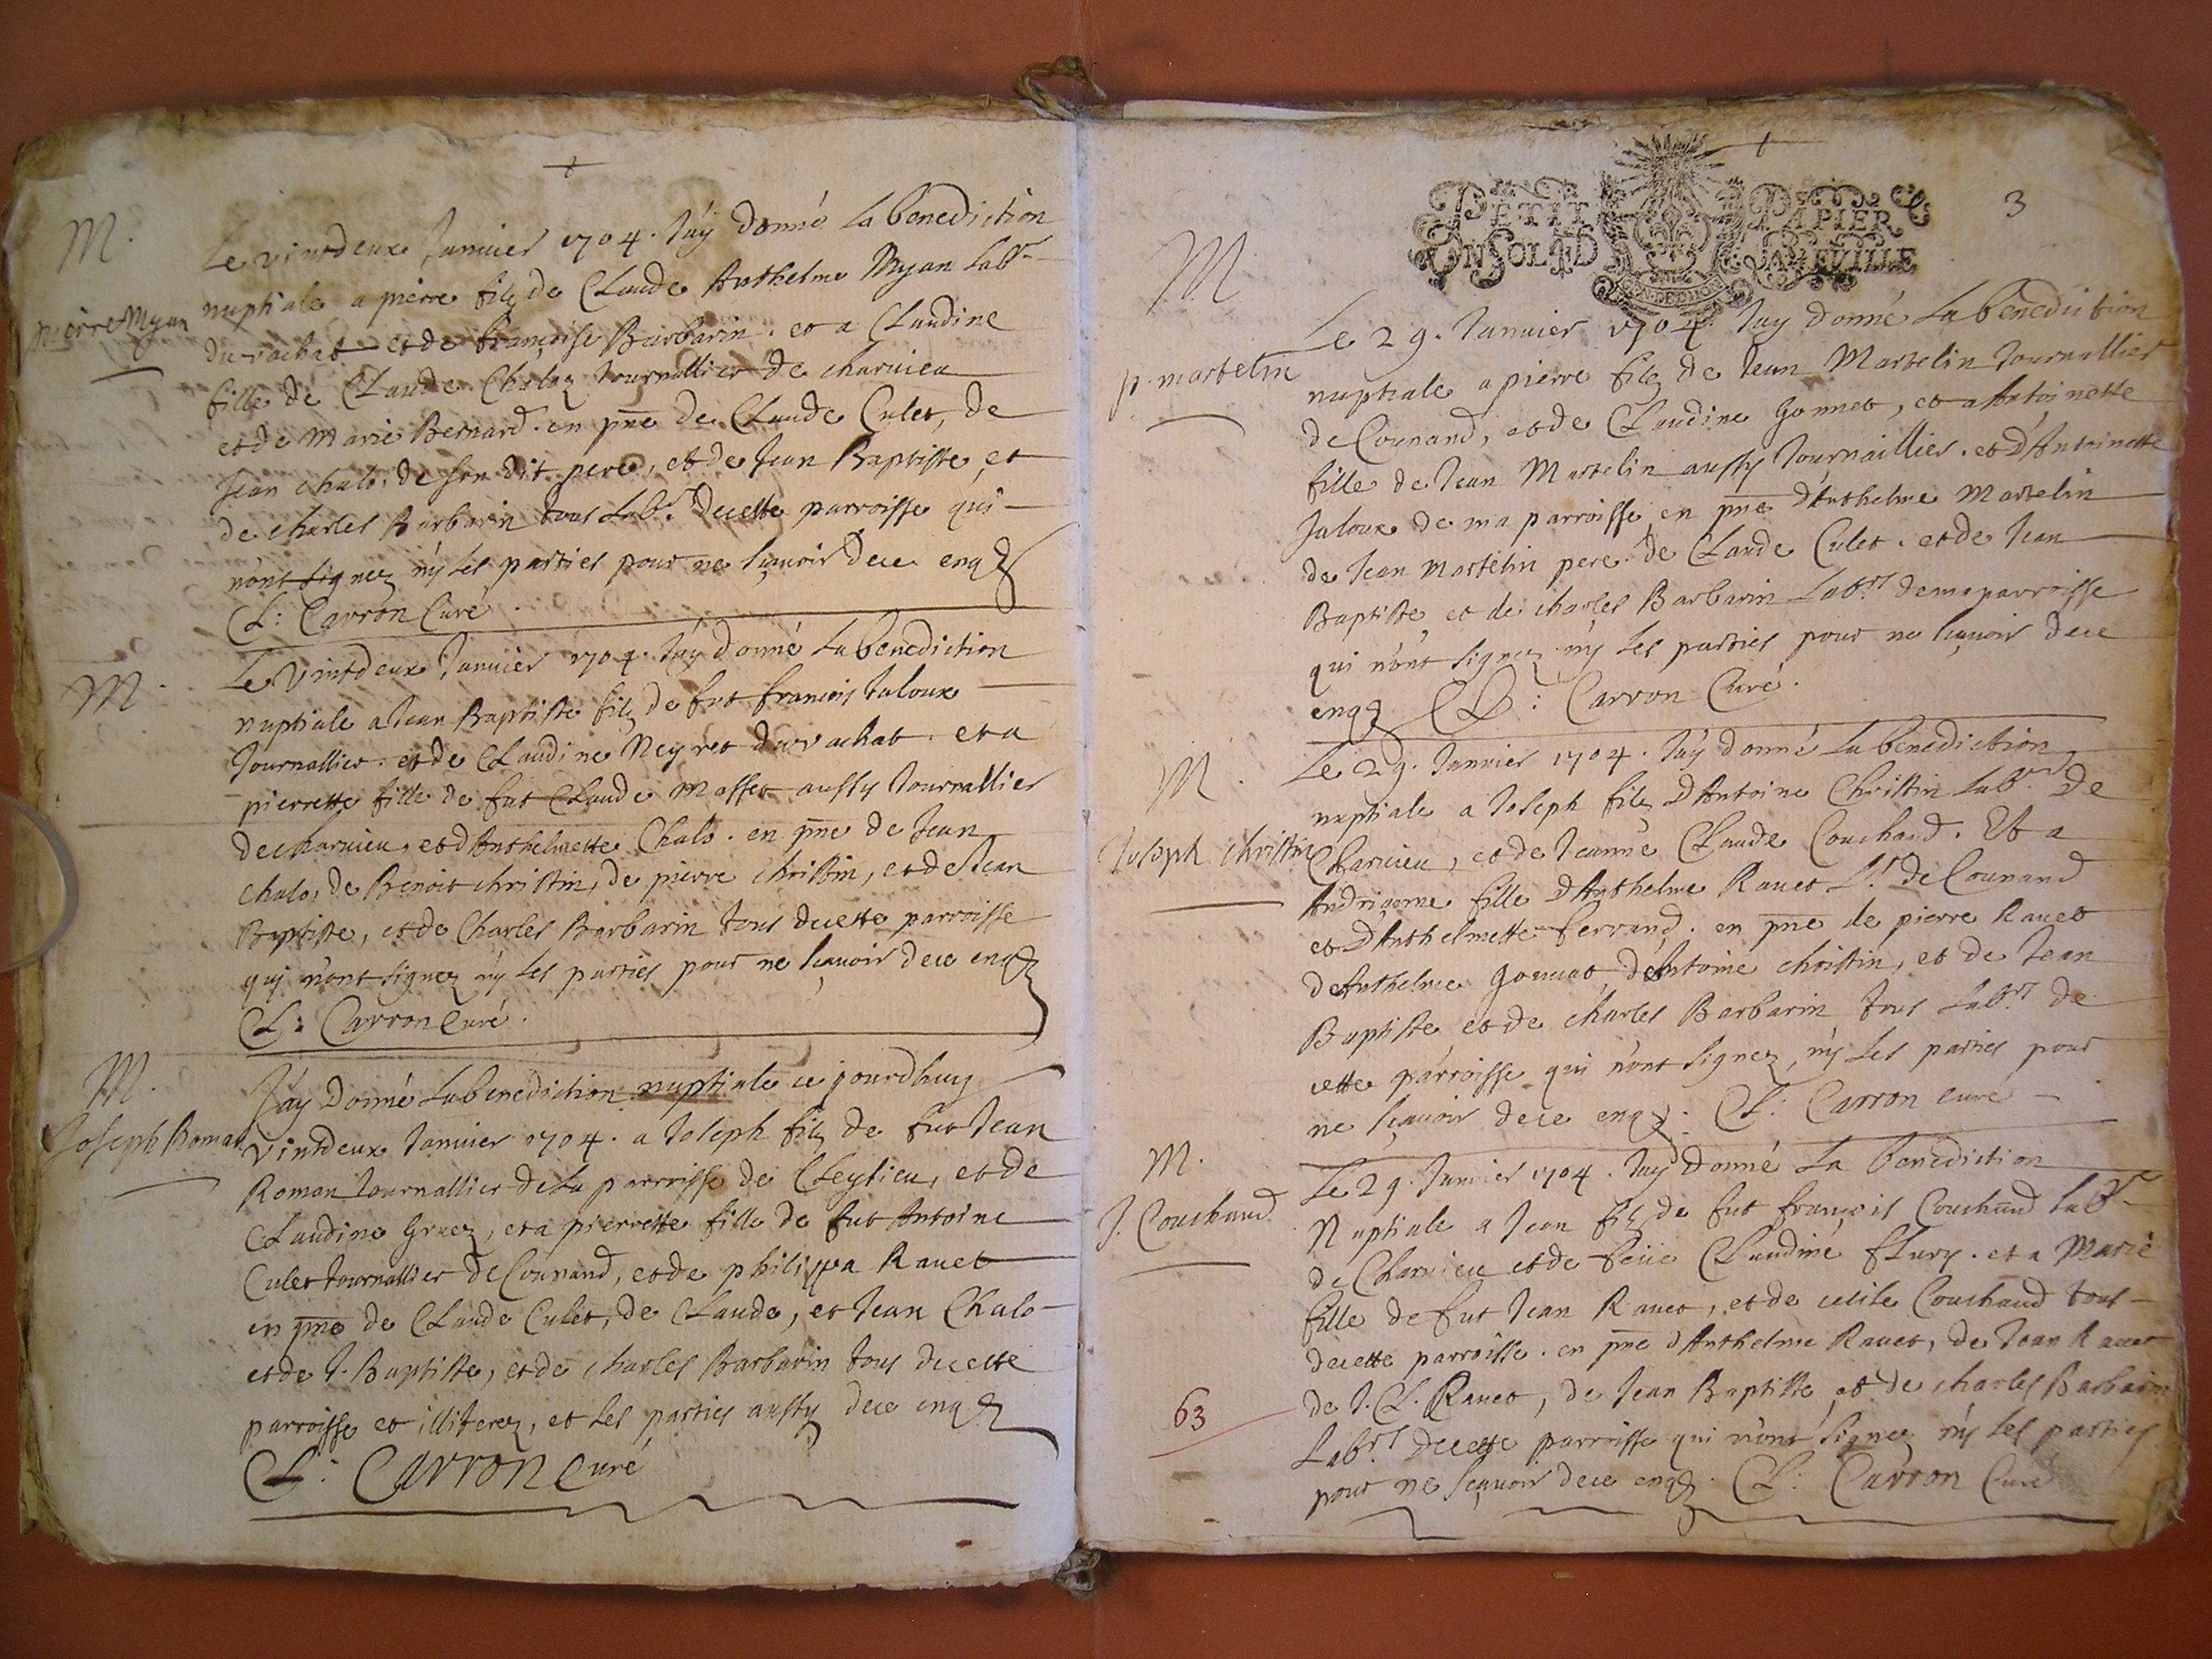 M.
Le vintdeux Januier 1704. J'ay donné la benediction
nuptiale a pierre filz de Claude Anthelme Myan labr
pierre Myan
du rachat et de françoise Barbarin. et a Claudine
fille de Claude Chaloz Journallier de charuieu
et de Marie Bernard. en pñe de Claude Culet, de
Jean chalo, de son dit pere, et de Jean Baptiste, et
de charles Barbarin tous labr. decette parroisse qui
n'ont signez n'y les parties pour ne sçauoir dece enqz
Cl: Carron Curé.
M.
Le Vintdeux Januier 1704. J'ay donné la benediction
nuptiale a Jean Baptiste filz de fut françois Jaloux
Journallier. et de Claudine Neyret du rachat. et a
pierrette fille de fut Claude Masset aussy Journallier
decharuieu, et d'Anthelmette Chalo. en pñe de Jean
chalo, de Benoit christin, de pierre christin, et de Jean
Baptiste, et de Charles Barbarin tous decette parroisse
qui n'ont signez n'y les parties pour ne sçauoir dece enqz
Cl: Carron Curé.
M.
J'ay Donné la benediction nuptiale ce jourdhuy
Joseph Roman
vintdeux Januier 1704. a Joseph filz de fut Jean
Roman Journallier de la parroisse de Cleyzieu, et de
Claudine Gruez, et a pierrette fille de fut Antoine
Culet Journallier de Counand, et de philippa Rauet
en pñe de Claude Culet, de Claude, et Jean Chalo
et de J. Baptiste, et de charles Barbarin tous decette
parroisse et illiterez, et les parties aussy dece enqz
Cl: Carron Curé
PETIT PAPIER
UN SOL LA FEUILLE
3
M.
Le 29. Januier 1704. J'ay donné la benediction
p. martelin
nuptiale a pierre filz de Jean Martelin Journallier
de Counand, et de Claudine Gonnet, et a Antoinette
fille de Jean Martelin aussy Journaillier. et d'Antoinette
Jaloux de ma parroisse en pñe d'Anthelme Martelin
de Jean Martelin pere. de Claude Culet. et de Jean
Baptiste et de charles Barbarin Labrs de ma parroisse
qui n'ont signez n'y les parties pour ne sçauoir dece
enqz Cl: Carron Curé.
M.
Le 29. Januier 1704. J'ay donné la benediction
nuptiale a Joseph filz d'Antoine Christin labr. de
Joseph christin
Charuieu, et de Jeanne Claude Couchaud. Et a
fille d'Anthelme Rauet Lr. de Counand
et d'Anthelmette ferrand. en pñe de pierre Rauet
de Anthelme d'Antoine christin, et de Jean
Baptiste et de charles Barbarin tous labrs de
cette parroisse qui n'ont signez, n'y les parties pour
ne sçauoir dece enqz. Cl: Carron curé
M.
Le 29. Januier 1704. J'ay Donné La benediction
J. Couchaud
Nuptiale a Jean filz de fut françois Couchaud labr
de Charuieu et de feüe Claudine flury. et a Marie
fille de fut Jean Rauet, et de cecile Couchaud tous
decette parroisse. en pñe d'Anthelme Rauet, de Jean Rauet
de J. Cl. Rauet, de Jean Baptiste et de charles Barbarin
63
Labrs decette parroisse qui n'ont signez n'y les parties
pour ne sçauoir dece enqz. Cl: Carron Curé